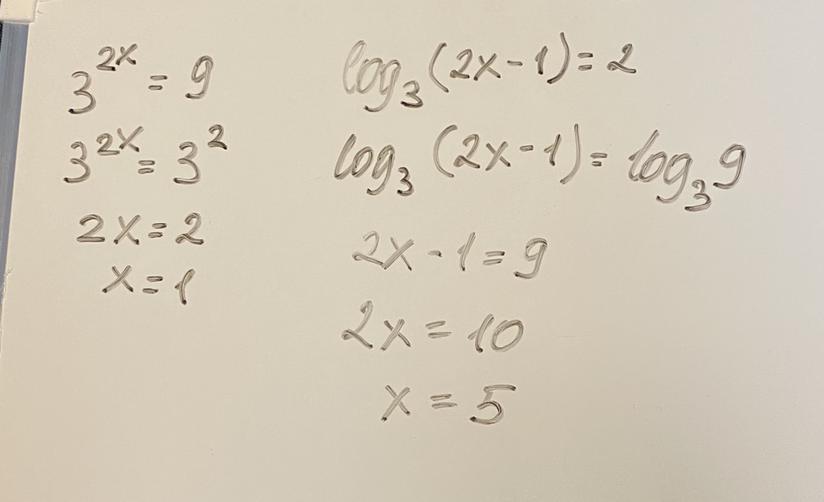 3^{2x} = 9
3^{2x} = 3^2
2x = 2
x = 1
log_3 (2x - 1) = 2
log_3 (2x - 1) = log_3 9
2x - 1 = 9
2x = 10
x = 5